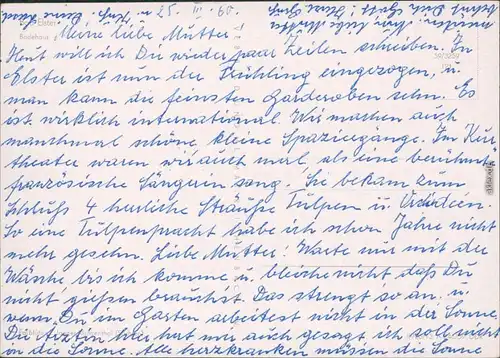 25. III. 60.
Meine liebe Mutter!
Heut will ich Dir wieder paar Zeilen schreiben. In
Elster ist nun der Frühling eingezogen, u.
man kann die feinsten Garderoben sehn. Es
ist wirklich international. Wir machen auch
manchmal schöne kleine Spaziergänge. Im Kur
theater waren wir auch mal, als eine berühmte
französische Sängerin sang. Sie bekam zum
Schluß 4 herrliche Sträuße Tulpen u. Orchideen.
So eine Tulpenpracht habe ich schon Jahre nicht
mehr gesehn. Liebe Mutter! Warte nur mit der
Wäsche bis ich komme u. bleiche nicht daß Du
nicht gießen brauchst. Das strengt so an. u.
wenn Du im Garten arbeitest nicht in der Sonne.
Die Ärztin hier hat mir auch gesagt ich soll nicht
in die Sonne. Alle herzkranken müssen die Sonne